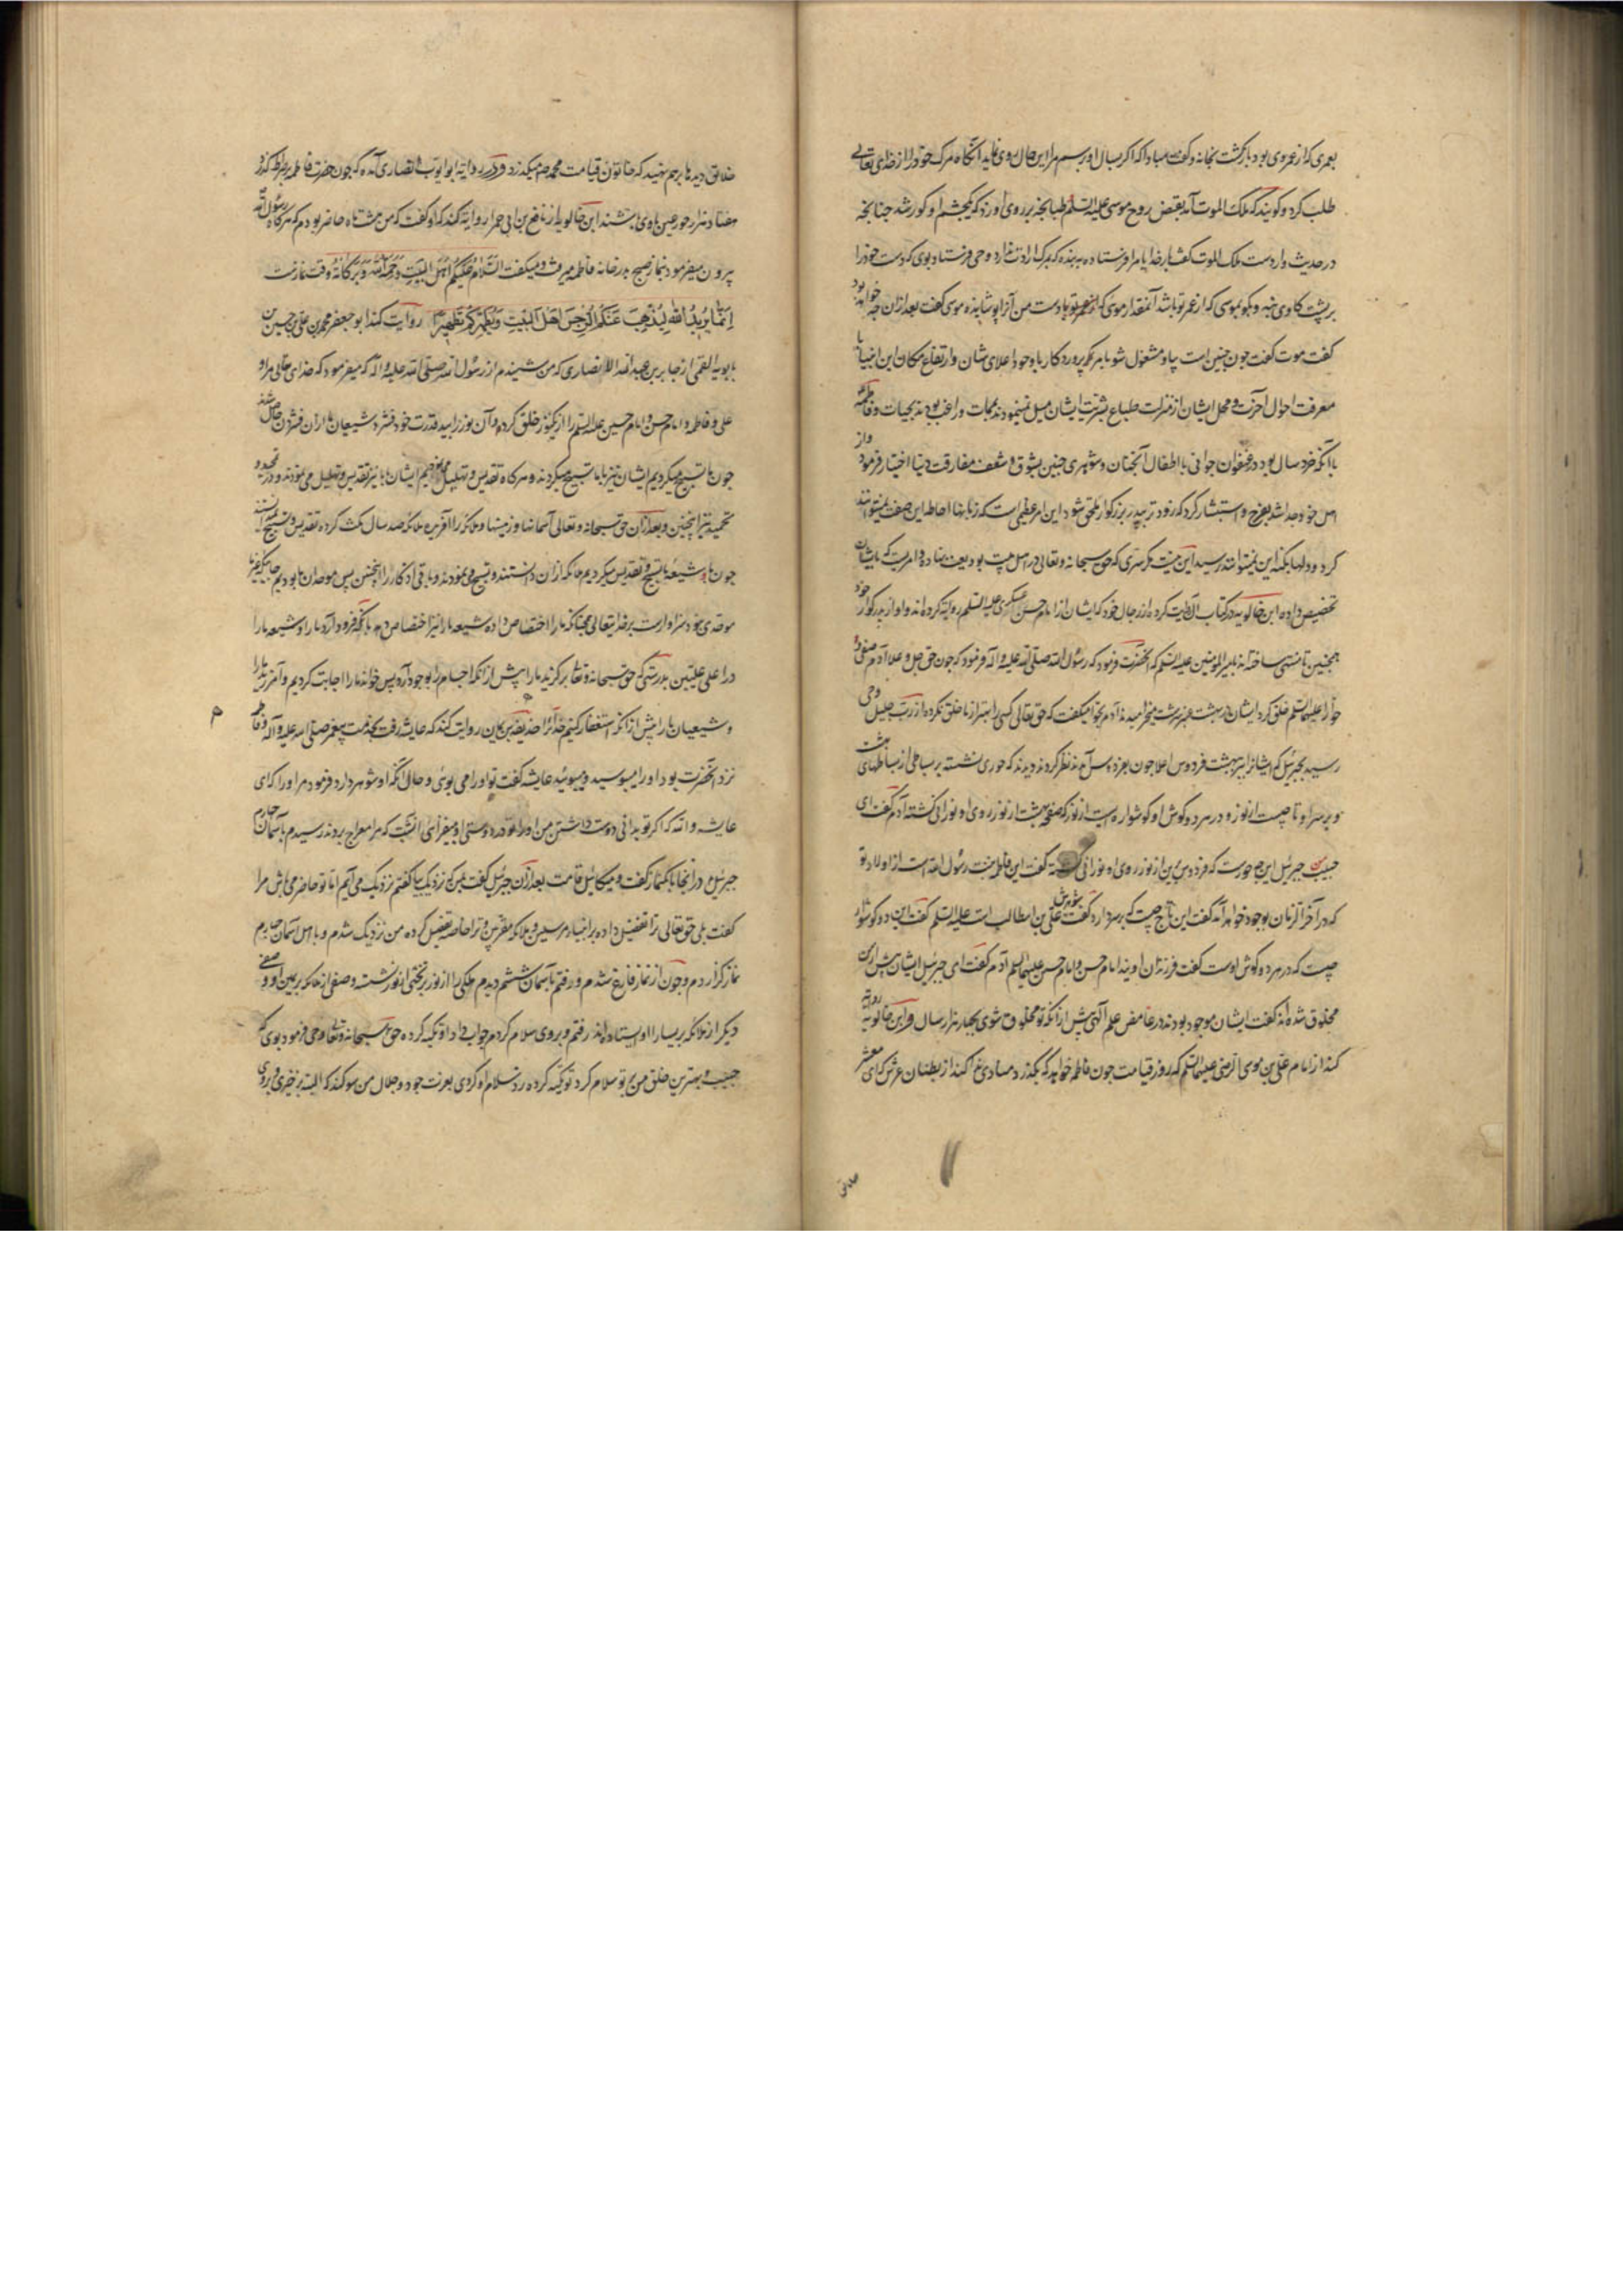 بعمری که از عمر وی بود بازگشت بخانه و گفت مبادا که اگر بسال او رسم مرا این حال روی نماید آنگاه مرک خود را از خدای تعالی
طلب کرد و گویند که ملک الموت آمد بقبض روح موسی علیه السلم طبانجه بر روی او زد که یکچشم او کور شد جنانجه
در حدیث وارد است ملک الموت گفت بار خدایا مرا فرستاده به بنده که مرک ارادت ندارد وحی فرستاد بوی که دست خود را
بر پشت کاوی نه و بکو بموسی که از عمر تو باشد آنمقدار موی که دست من آنرا پوشانیده موسی گفت بعد از آن جه خواهد بود
گفت موت گفت جون جنین است بیا و مشغول شو بامر پروردکار با وجود اعلای شان و ارتفاع مکان این انبیا با
معرفت احوال آخرت و محل ایشان از منزلت طباع بشریت ایشان میل نمینمودند بممات و راغب بودند بحیات و فاطمه
با آنکه خرد سال بود در عنفوان جوانی با اطفال آنجنان و شوهری جنین بشوق و شعف مفارقت دنیا اختیار فرمود و از
اهل خود جدا شد بفرح و استبشار کرد که زود تر به پدر بزرکوار ملحق شود این امر عظیمی است که زبانها احاطه این صفت نمیتوانند
کرد و دلها بکنه این نمیتوانند رسید این نیست مکر سری که حق سبحانه و تعالی در اهل بیت بودیعت نهاده و امریست که بایشان
تخصیص داده ابن خالویه در کتاب الآل روایت کرده از رجال خود که ایشان از امام حسن عسکری علیه السلم روایة کرده‌اند و او از پدر بزرکوار خود
همجنین تا منتهی ساخته‌اند بامیر المؤمنین علیه السلم که آنحضرت فرمود که رسول الله صلی الله علیه و اله فرمود که جون حق جل و علا آدم صفی و
حوا را علیهما السلم خلق کرد ایشان در بهشت عنبر سرشت میخرامیدند آدم بحوا میکفت که حق تعالی کسی را بهتر از ما خلق نکرده از رب جلیل وحی
رسید بجبرئیل که ایشانرا ببر ببهشت فردوس اعلا جون بفردوس آمدند نظر کردند دیدند که حوری نشسته بر بساطی از بساطهای بهشت
و بر سر او تاجیست از نور و در هر دو کوش او کوشواره‌ایست از نور که صفحه بهشت از نور روی او نورانی کشته آدم گفت ای
حبیب من جبرئیل این جه حوریست که فردوس برین از نور روی او نورانی کشته گفت این فاطمه بنت رسول الله است از اولاد تو
که در آخر الزمان بوجود خواهد آمد گفت این تاج جیست که بر سر دارد گفت شوهرش علی بن ابیطالب است علیه السلم گفت این دو کوشواره
جیست که در هر دو کوش اوست گفت فرزندان اویند امام حسن و امام حسین علیهما السلم آدم گفت ای جبرئیل ایشان پیش از من
مخلوق شده‌اند گفت ایشان موجود بودند در غامض علم آلهی پیش از آنکه تو مخلوق شوی بجهار هزار سال و ابن خالویه روایة
کند از امام علی بن موسی الرضی علیهما السلم که روز قیامت جون فاطمه خواهد که بکذرد منادی ندا کند از بطنان عرش که ای معشر
خلایق دیدها بر هم نهید که خاتون قیامت بنت محمد میکذرد و در روایة ابو ایوب انصاری آمده که جون حضرت فاطمه بر صراط کذرد
هفتاد هزار حور عین با وی باشند ابن خالویه از نافع بن ابی حمرا روایة کند که او گفت که من هشت ماه حاضر بودم که هرکاه رسول الله
بیرون میفرمود بنماز صبح بدر خانه فاطمه میرفت و میکفت السَّلَامُ عَلَیْکُمْ اَهْلَ الْبَیْتِ وَ رَحْمَةُ اللهِ وَ بَرَکَاتُهُ وقت نمازست
اِنَّمَا یُرِیدُ اللهُ لِیُذْهِبَ عَنْکُمُ الرِّجْسَ اَهْلَ الْبَیْتِ وَ یُطَهِّرَکُمْ تَطْهِیرًا روایت کند ابو جعفر محمد بن علی بن حسین بن
بابویه القمی از جابر بن عبد الله الانصاری که من شنیدم از رسول الله صلی الله علیه و اله که میفرمود که خدای تعالی مرا و
علی و فاطمه و امام حسن و امام حسین علیه السلم را از یک نور خلق کرده و آن نور را بید قدرت خود فشرد شیعیان ما از آن فشردن حاصل شدند
جون ما تسبیح میکردیم ایشان نیز با ما تسبیح میکردند و هرکاه تقدیس و تهلیل ایشان با ما نیز تقدیس و تهلیل می‌نمودند و در تمجید و
تحمید نیز اینجنین و بعد از آن حق سبحانه و تعالی آسمانها و زمینها و ملائکه را آفرید ملائکه صد سال مکث کرده تقدیس و تسبیح نمیدانستند
جون ما و شیعه ما تسبیح و تقدیس میکردیم ملائکه از آن دانستند و تسبیح می‌نمودند و باقی اذکار را اینجنین پس موحدان ما بودیم
موحدی نبود و سزاوارست بر خدایتعالی همجنانکه ما را اختصاص داده شیعه ما را نیز اختصاص دهد بآنکه فرود آرد ما را و شیعه ما را
در اعلی علیین بدرستی که حق سبحانه و تعالی برکزید ما را پیش از آنکه اجسام ما بوجود آید پس خواند ما را اجابت کردیم و آمرزید ما را
و شیعیان ما را پیش از آنکه استغفار کنیم خدایرا حذیفه بن یمان روایت کند که عایشه رفت بخدمت پیغمبر صلی الله علیه و آله و فاطمه
نزد آنحضرت بود او را میبوسید و میبوئید عایشه گفت تو او را می بوئی و حال آنکه او شوهر دارد فرمود مر او را که ای
عایشه و الله که اکر تو بدانی دوست داشتن من او را هر آینه در دوستی او میفزائی آنشب که مرا بمعراج بردند رسیدم بآسمان جهارم
جبرئیل در آنجا بانک نماز گفت و میکائیل قامت بعد از آن جبرئیل گفت بمن که نزدیک بیا گفتم نزدیک می‌آیم اما تو حاضر می‌باش مرا
گفت بلی حق تعالی ترا تفضیل داده بر انبیاء مرسلین و ملائکه مقربین و ترا خاصه تفضیل کرده من نزدیک شدم و با اهل آسمان جهارم
نماز کزاردم و جون از نماز فارغ شدم و رفتم بآسمان ششم دیدم ملکی را از نور بر تختی از نور نشسته و صفی از ملائکه بر یمین او و صفی
دیکر از ملائکه بر یسار او ایستاده‌اند رفتم و بر وی سلام کردم جواب داد او تکیه کرده حق سبحانه و تعالی وحی فرمود بوی که
حبیب و بهترین خلق من بر تو سلام کرد تو تکیه کرده رد سلام او کردی بعزت جود و جلال من سوکند که البته بر خیزی و بروی